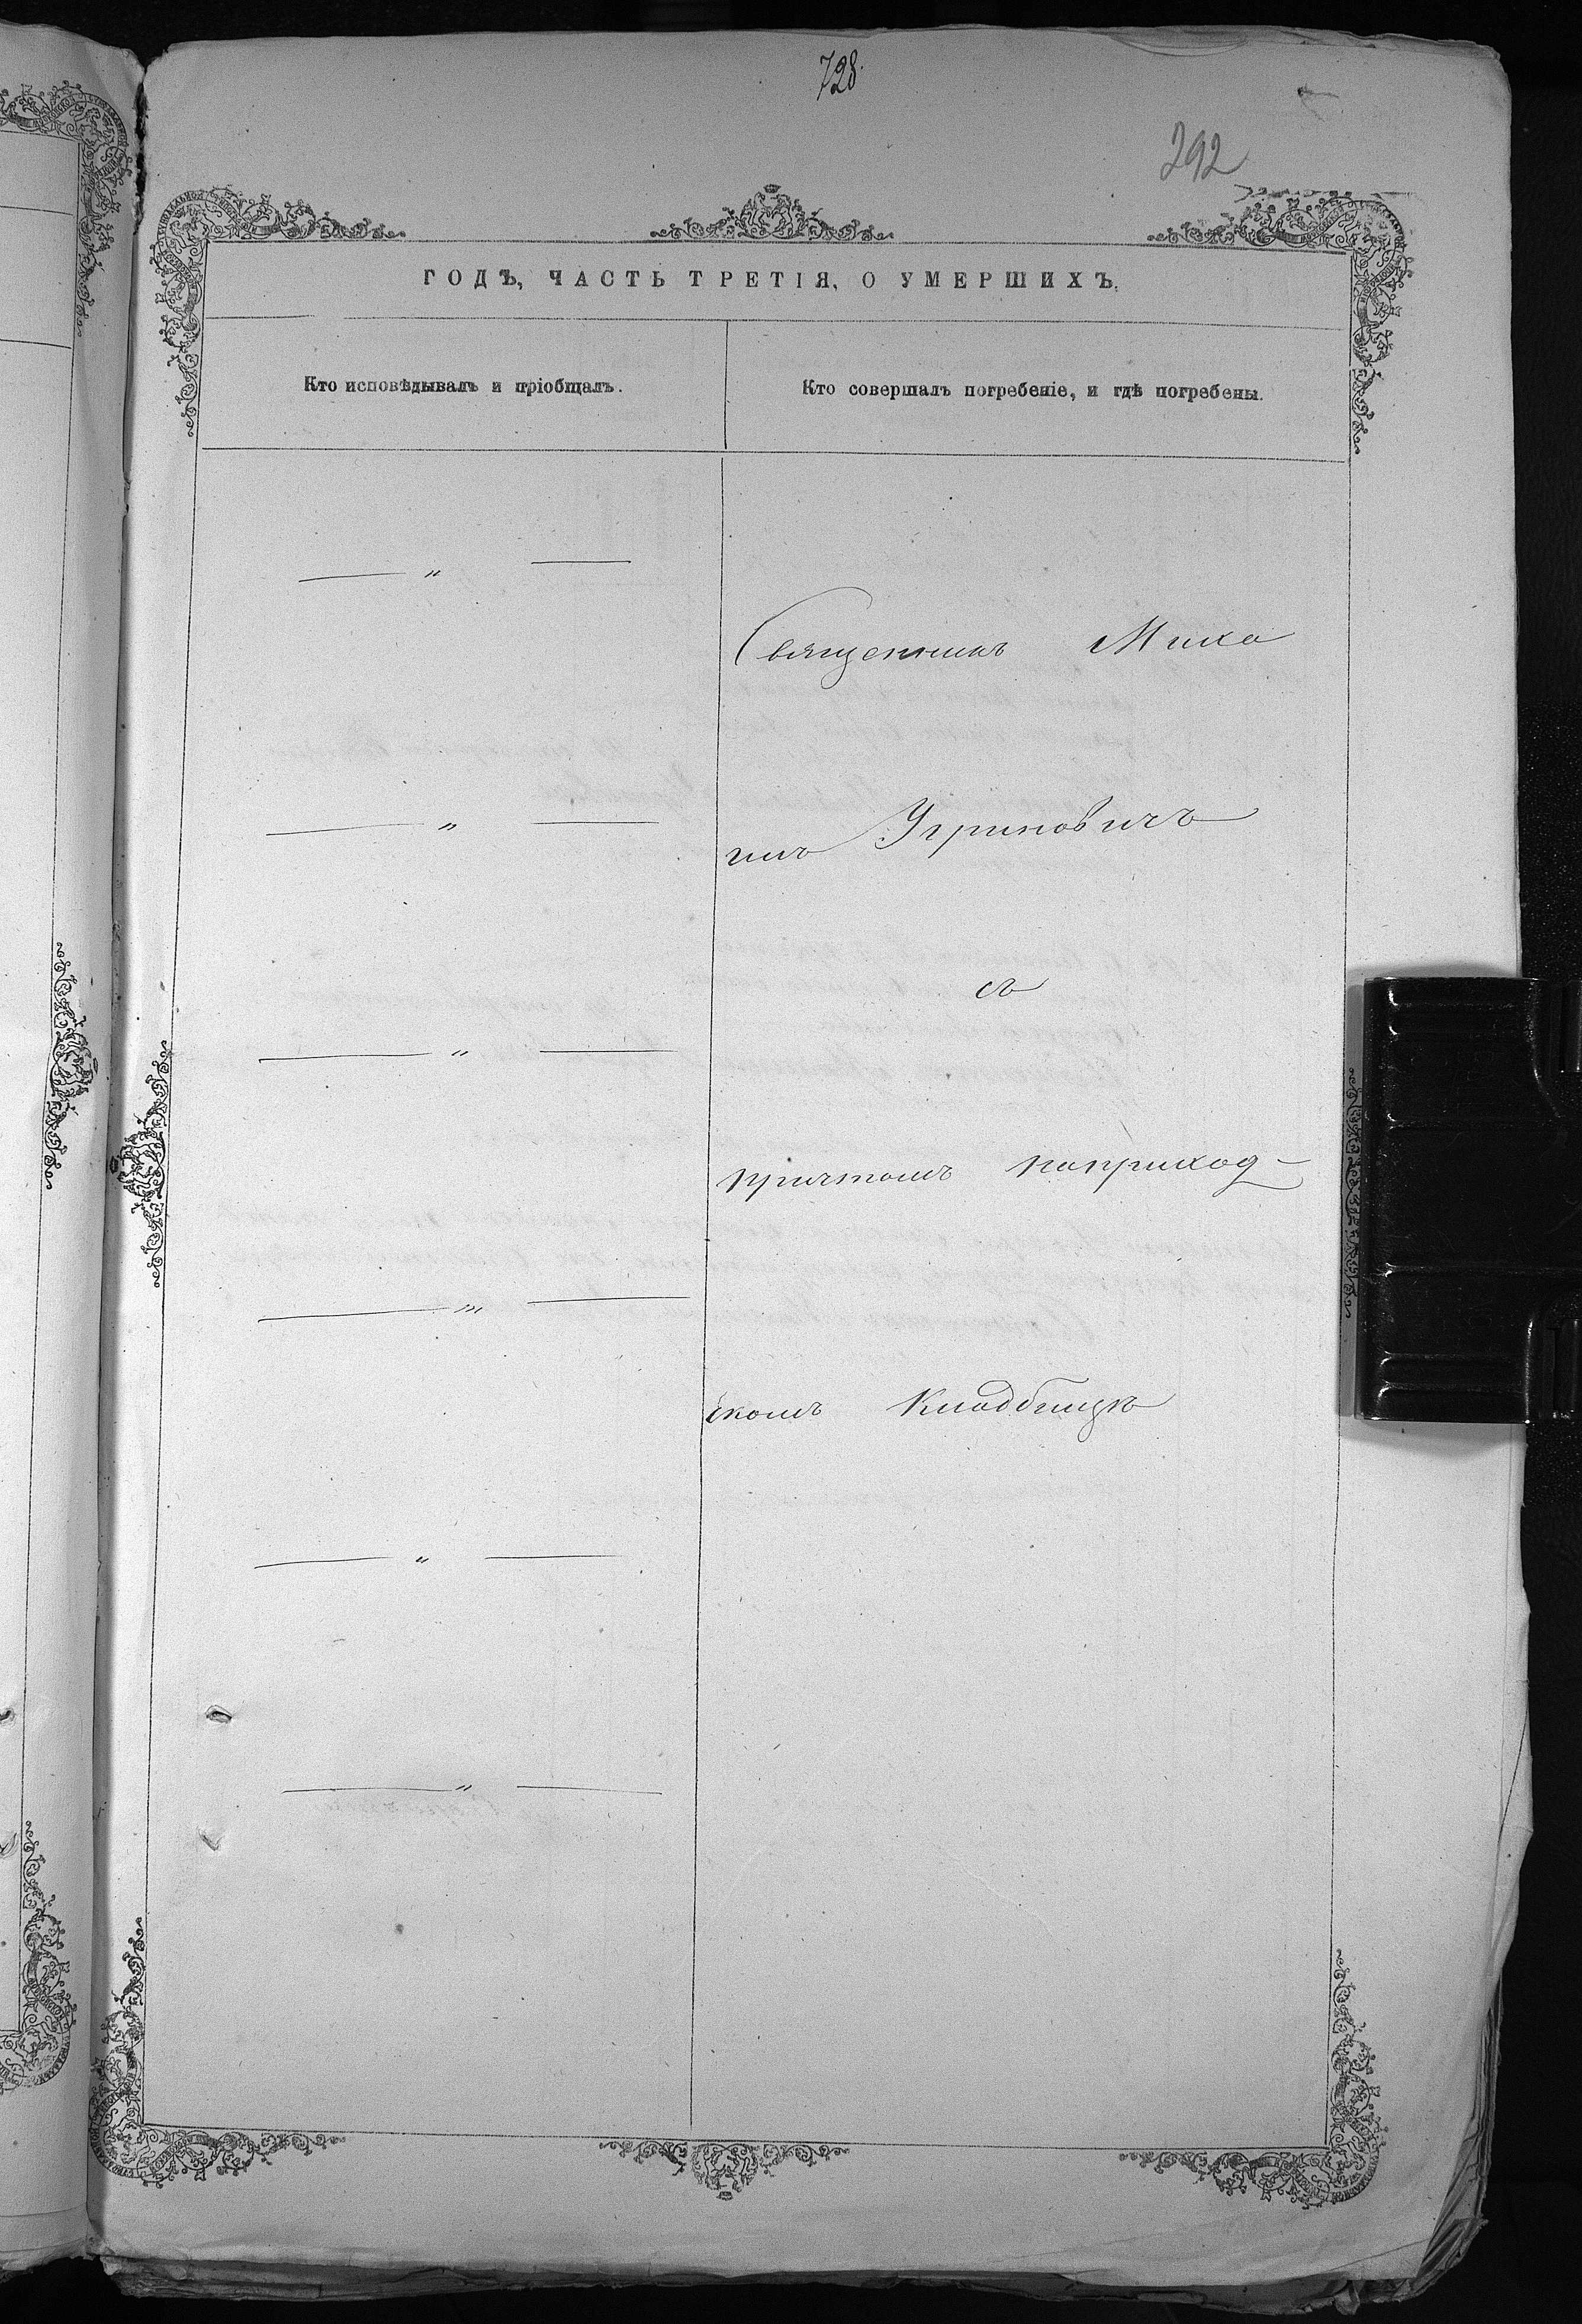 728.
292
ГОДЪ, ЧАСТЬ ТРЕТІЯ, О УМЕРШИХЪ.
Кто исповѣдывалъ и пріобщалъ.
Кто совершалъ погребеніе, и гдѣ погребены.
— " —
Священникъ Миха
— " —
илъ Угриновичъ
съ
— " —
причтомъ наприход-
— " —
скомъ Кладбищѣ
— " —
— " —